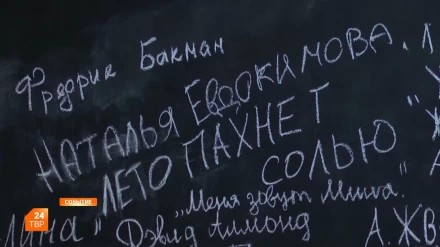 Фредрик Бакман
НАТАЛЬЯ ЕВДОКИМОВА.
ЛЕТО ПАХНЕТ
СОЛЬЮ
"Меня зовут Мина.
Дэвид Алмонд
А.ЖВ
СОБЫТИЕ
24
ТВР